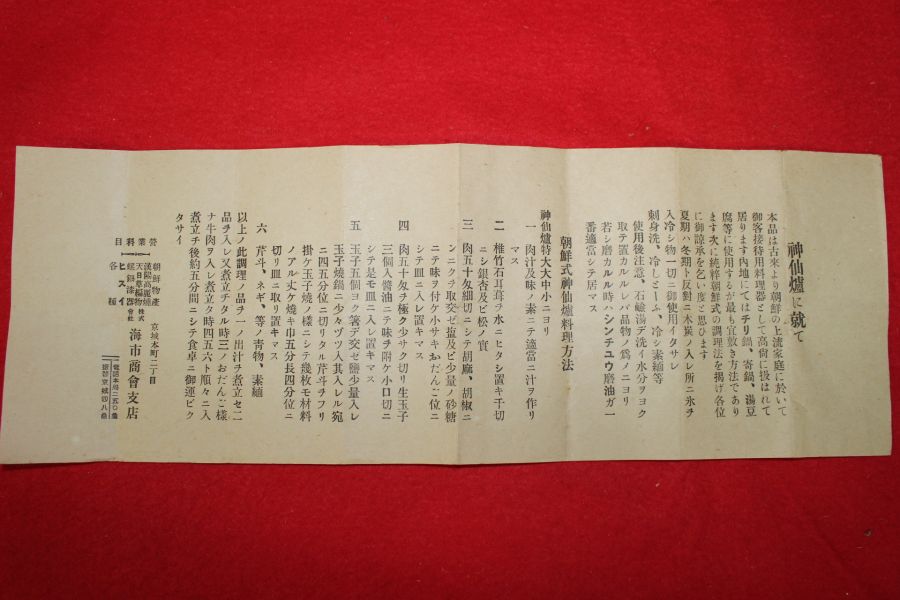 神仙爐に就て
本品は古来より朝鮮の上流家庭に於いて
御客接待用料理器として高尚に扱はれて
居ります內地にてはチリ鍋、寄鍋、湯豆
腐等に使用するが最も宜敷き方法であり
ます次に純粹朝鮮式の調理法を揭げ各位
に御諒承を乞い度と思ひます
夏期ハ冬期ト反對ニ木炭ノ入レ所ニ氷ヲ
入冷シ物一切ニ御使用イタサレ
刺身洗、冷しとーふ、冷シ素緬等
使用後注意、石鹼湯デ洗イ水分ヲヨク
取テ置カルレバ品物ノ爲メニヨリ
若シ磨カルル時ハシンチユウ磨油ガ一
番適當シテ居マス
朝鮮式神仙爐料理方法
神仙爐特大大中小ニヨリ
一 肉汁及味ノ素ニテ適當ニ汁ヲ作リ
マス
二 椎竹石耳茸ヲ水ニヒタシ置キ千切
ニシ銀杏及ビ松ノ實
三 肉五十匁細切ニシテ胡麻、胡椒ニ
ンニクヲ取交ゼ盐及ビ少量ノ砂糖
ニテ味ヲ付ケ小サキおだんご位ニ
シテ皿ニ入レ置キマス
四 肉五十匁ヲ極ク少サク切リ生玉子
三個入醬油ニテ味チ附ケ小口切ニ
シテ是モ皿ニ入レ置キマス
五 玉子五個ヨク箸デ交ゼ鹽少量入レ
玉子燒鍋ニ少々ヅツ入其入レル宛
ニ四五分位ニ切リタル芹斗チフリ
掛ケ玉子燒ノ樣ニシテ幾枚モ材料
ノアル丈ケ燒キ巾五分長四分位ニ
切リ皿ニ取リ置キマス
六 芹斗、ネギ、等ノ靑物、素緬
以上ノ此調理ノ品チ一ノ出汁チ煮立セ二
品チ入レ又煮立チタル時三ノおだんご樣
ナ牛肉ヲ入レ煮立タ時四五六ト順々ニ入
煮立チ後約五分間ニシテ食卓ニ御運ビク
タサイ
營業科目
朝鮮物產
漢陽高麗燒
天日草編物
螺鈿漆器
ヒスイ
各種
京城本町二丁目
株式會社 海市商會支店
電話本局二五〇番
振替京城四八番